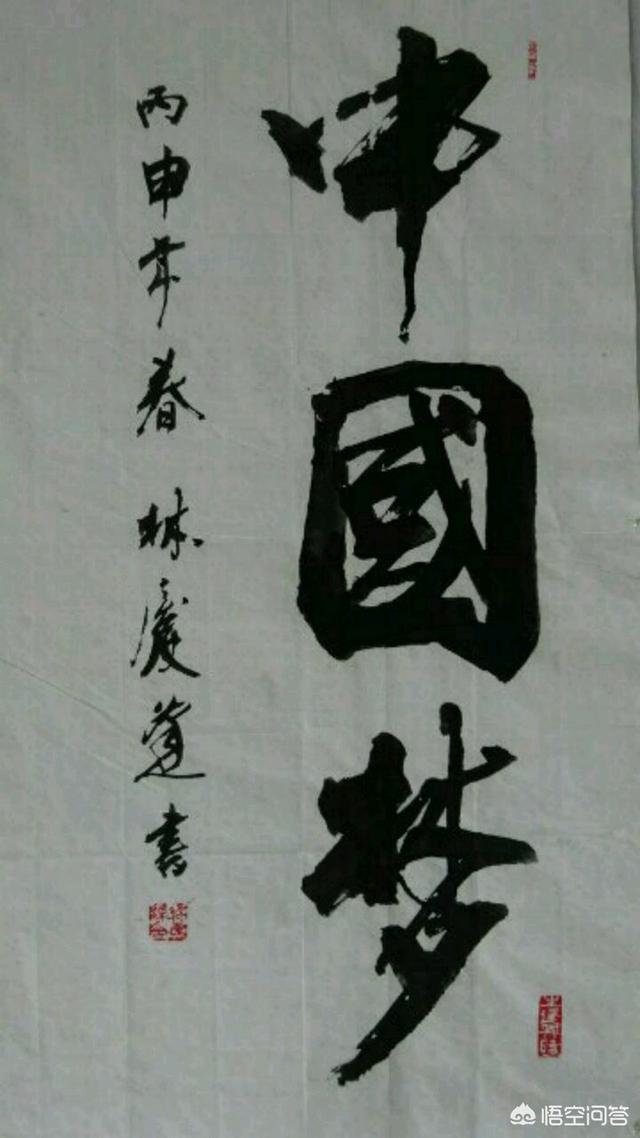 中國梦
丙申年春 林慶
書
悟空问答